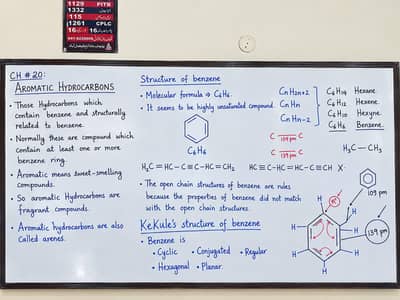 1129 PITB
1332
115
1261 CPLC
16 16
CH # 20:
AROMATIC HYDROCARBONS
• Those Hydrocarbons which
contain benzene and structurally
related to benzene.
• Normally these are compound which
contain at least one or more
benzene ring.
• Aromatic means sweet-smelling
compounds.
• So aromatic Hydrocarbons are
fragrant compounds.
• Aromatic hydrocarbons are also
Called arenes.
Structure of benzene
• Molecular formula ⇒ C₆H₆.
• It seems to be highly unsaturated compound.
C₆H₆
H₂C = HC - C ≡ C - HC = CH₂
HC ≡ C - HC = HC - C ≡ CH X.
• The open chain structures of benzene are rules
because the properties of benzene did not match
with the open chain structures.
KeKule's structure of benzene
• Benzene is
• Cyclic • Conjugated • Regular
• Hexagonal • Planar.
CnH2n+2
CnHn
CnHn-2
C₆H₁₄ Hexane.
C₆H₁₂ Hexene.
C₆H₁₀ Hexyne.
C₆H₆ Benzene.
C 154 pm C
C 133 pm C
H₃C - CH₃
109 pm
H
H
H
H
H
H
139 pm